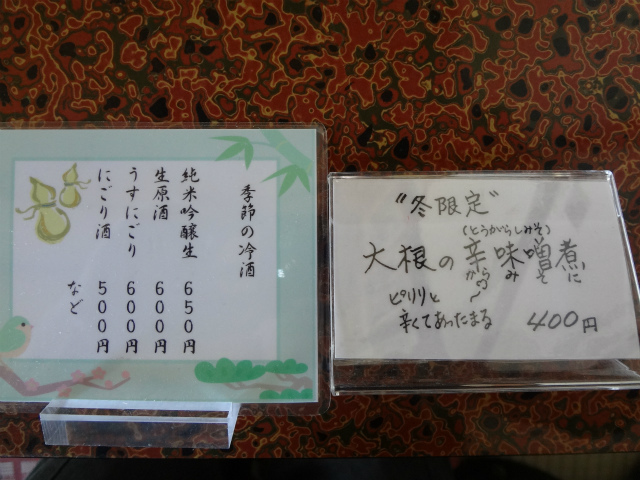 季節の冷酒
純米吟醸生 650円
生原酒 600円
うすにごり 600円
にごり酒 500円
など
"冬限定"
(とうがらしみそ)
大根の辛味噌煮
からみそに
ピリリと
辛くてあったまる
400円